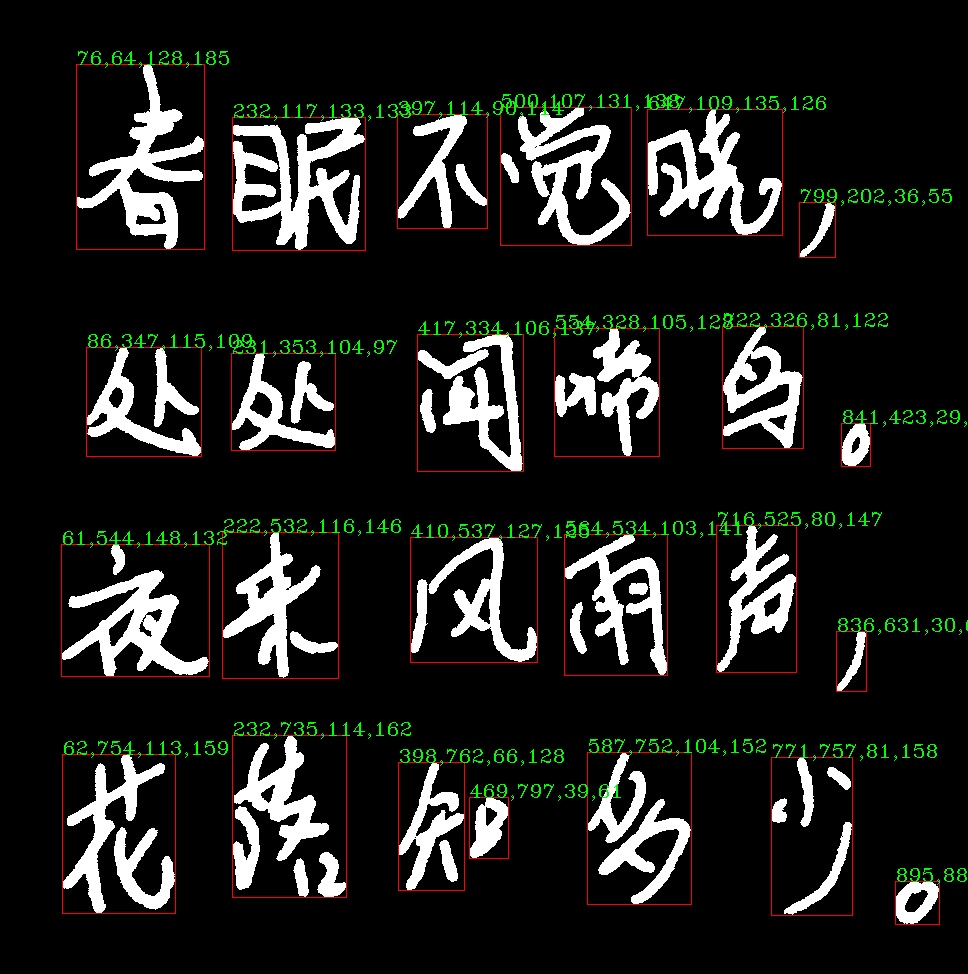 76,64,128,185 232,117,133,133 397,114,90,114 500,107,131,138 647,109,135,126 799,202,36,55
春眠不觉晓，
86,347,115,109 231,353,104,97 417,334,106,137 554,328,105,128 722,326,81,122 841,423,29,
处处闻啼鸟。
61,544,148,132 222,532,116,146 410,537,127,125 564,534,103,141 716,525,80,147 836,631,30,6
夜来风雨声，
62,754,113,159 232,735,114,162 398,762,66,128 469,797,39,61 587,752,104,152 771,757,81,158 895,88
花落知多少。